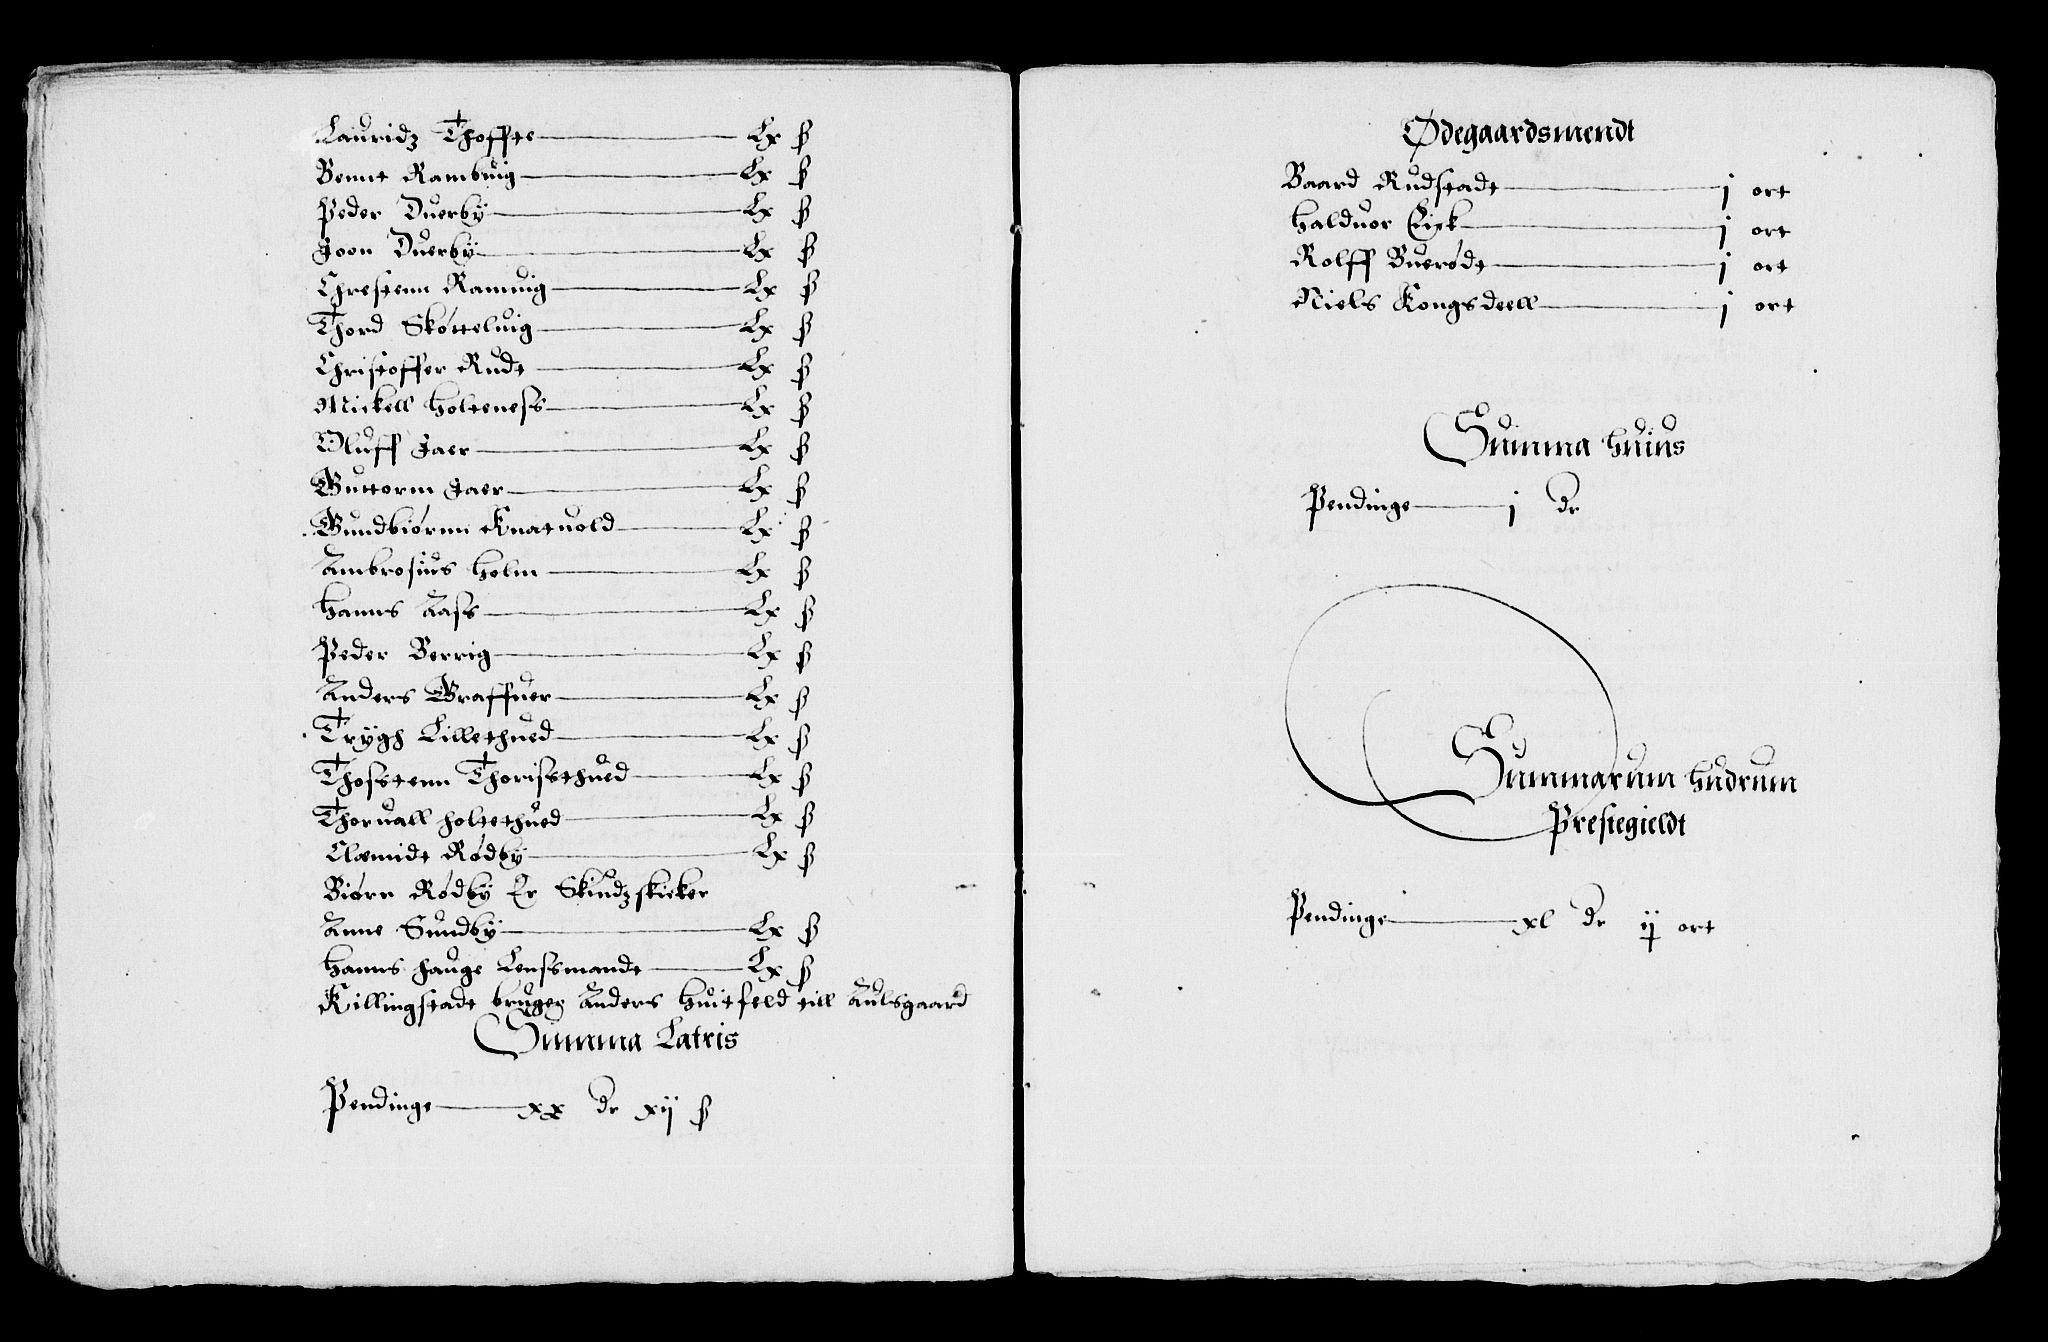 Lauridz Thoffte Lx ß
Bennt Rambuig Lx ß
Peder Duerby Lx ß
Joon Duerby Lx ß
Chrestenn Ramuig Lx ß
Thord Skøtteluig Lx ß
Christoffer Rudt Lx ß
Mickell Holteness Lx ß
Oluff Jaer Lx ß
Guttorm Jaer Lx ß
Gundbiørnn Knatuold Lx ß
Ambrosius Holm Lx ß
Hanns Aass Lx ß
Peder Berrig Lx ß
Anders Graffuer Lx ß
Trygh Lillethued Lx ß
Thosstenn Thorissthued Lx ß
Thoruall Holtethued Lx ß
Clæmidt Rødby Lx ß
Biørn Rødby Er Skindzskieker
Anne Sundby Lx ß
Hanns Hauge Lenssmandt Lx ß
Killingstadt bruger Anders Huitfeld till Aulsgaard
Summa Latris
Pendinge xx dr xij ß
Ødegaardsmendt
Baard Rudstadt j ort
Halduor Eick j ort
Rolff Buerødt j ort
Niels Kongsdeell j ort
Summa huius
Pendinge j dr
Summarum Hudrum
Prestegieldt
Pendinge xl dr ij ort